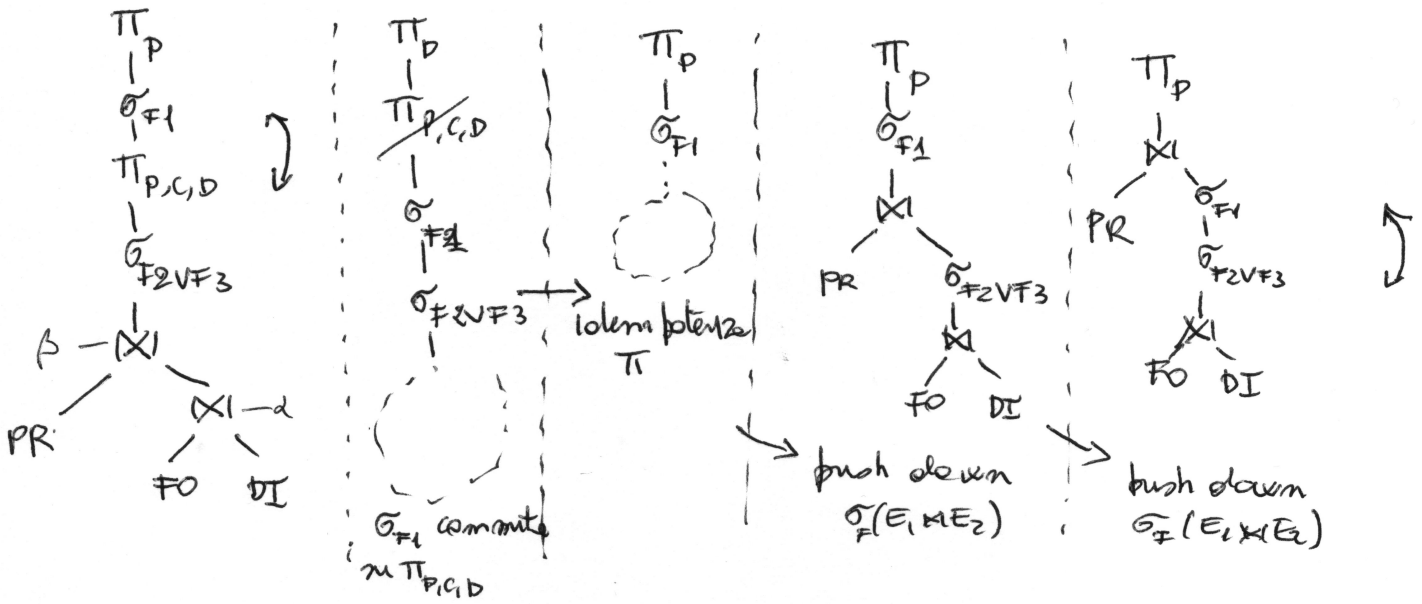 π_P
σ_F1
π_P,C,D
σ_F2∨F3
β – ⋈
PR
⋈ – α
FO DI
π_D
π_P,C,D
σ_F1
σ_F2∨F3
σ_F1 commuta
su π_P,C,D
π_P
σ_F1
idempotenza
π
π_P
σ_F1
⋈
PR
σ_F2∨F3
⋈
FO DI
push down
σ_F(E₁ ⋈ E₂)
π_P
⋈
PR
σ_F1
σ_F2∨F3
⋈
FO DI
push down
σ_F(E₁ ⋈ E₂)